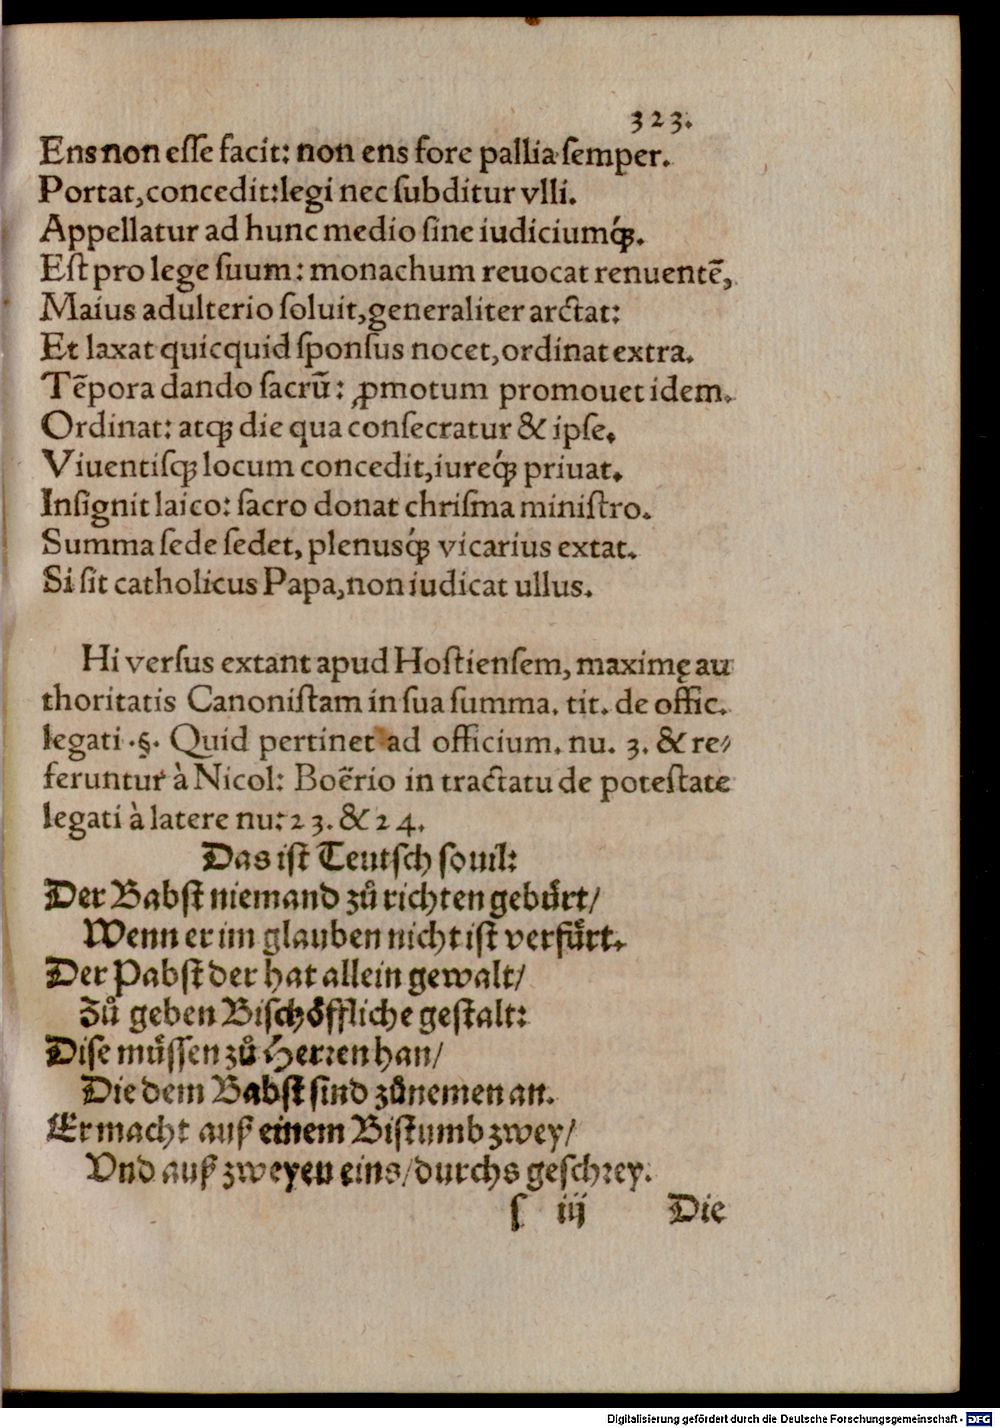 323.
Ens non eſſe facit: non ens fore pallia ſemper.
Portat, concedit: legi nec ſubditur vlli.
Appellatur ad hunc medio ſine iudiciumq́ꝫ.
Eſt pro lege ſuum: monachum reuocat renuentē,
Maius adulterio ſoluit, generaliter arctat:
Et laxat quicquid ſponſus nocet, ordinat extra.
Tēpora dando ſacrū: ꝓmotum promouet idem.
Ordinat: atqꝫ die qua conſecratur & ipſe.
Viuentiſqꝫ locum concedit, iureq́ꝫ priuat.
Inſignit laico: ſacro donat chriſma miniſtro.
Summa ſede ſedet, plenusq́ꝫ vicarius extat.
Si ſit catholicus Papa, non iudicat ullus.
Hi verſus extant apud Hoſtienſem, maximę au
thoritatis Canoniſtam in ſua ſumma. tit. de offic.
legati .§. Quid pertinet ad officium. nu. 3. & re⸗
feruntur à Nicol: Boërio in tractatu de poteſtate
legati à latere nu: 23. & 24.
Das iſt Teutſch ſouil:
Der Babſt niemand zů richten gebürt/
Wenn er im glauben nicht iſt verfürt.
Der Pabſt der hat allein gewalt/
Zů geben Biſchöffliche geſtalt:
Diſe müſſen zů Herꝛen han/
Die dem Babſt ſind zůnemen an.
Er macht auß einem Biſtumb zwey/
Vnd auß zweyen eins/ durchs geſchꝛey.
ſ iij Die
Digitalisierung gefördert durch die Deutsche Forschungsgemeinschaft - DFG